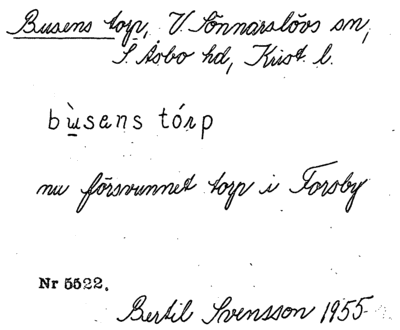 Busens torp, V. Sönnarslövs sn,
S. Åsbo hd, Krist. l.
bù̲sens tórp
nu försvunnet torp i Forsby
Nr 5522.
Bertil Svensson 1955